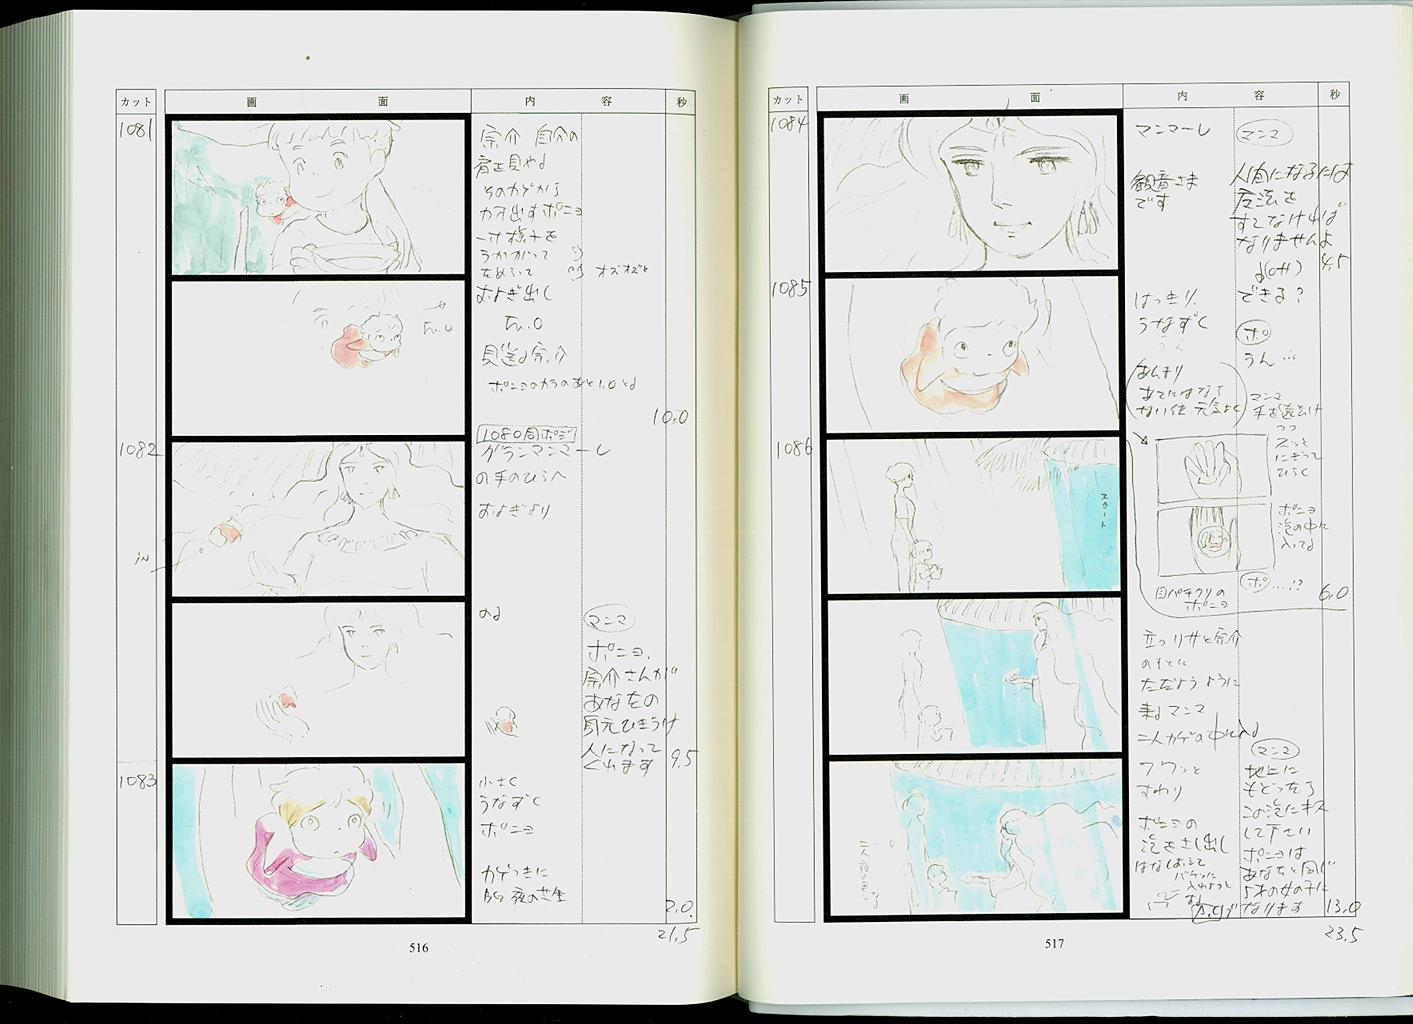 カット 画 面 内 容 秒
1081
宗介 自分の
肩を見やる
そのカゲから
カオ出すポニョ
うかがって
オズオズと
およぎ出し
F.O
F.O
見送る宗介
10.0
1082
1080同ポジ
グランマンマーレ
の手のひらへ
およぎより
iN
のる
マンマ
ポニョ、
宗介さんが
あなたの
身元ひきうけ
人になって
くれます
9.5
1083
小さく
うなずく
ポニョ
カゲつきに
BG 夜の芝生
2.0
21.5
516
カット 画 面 内 容 秒
1084
マンマーレ
観音さま
です
マンマ
人間になるには
魔法を
すてなければ
なりませんよ
4.5
できる?
1085
はっきり、
うなずく
うん
ポ
うん…
あんまり
あてにはなら
ない位 元気よく
マンマ
手を近づけ
つつ
スッと
にぎって
ひらく
ポニョ
泡の中に
入ってる
ポ ……!?
目パチクリの
ポニョ
6.0
1086
スカート
立つリサと宗介
のもとに
ただよう ように
来るマンマ
二人カゲの中に入る
フワッと
すわり
ポニョの
泡をさし出し
マンマ
地上に
もどったら
この泡にキス
して下さい
ポニョは
あなたと同じ
5才の女の子に
なります
13.0
23.5
517